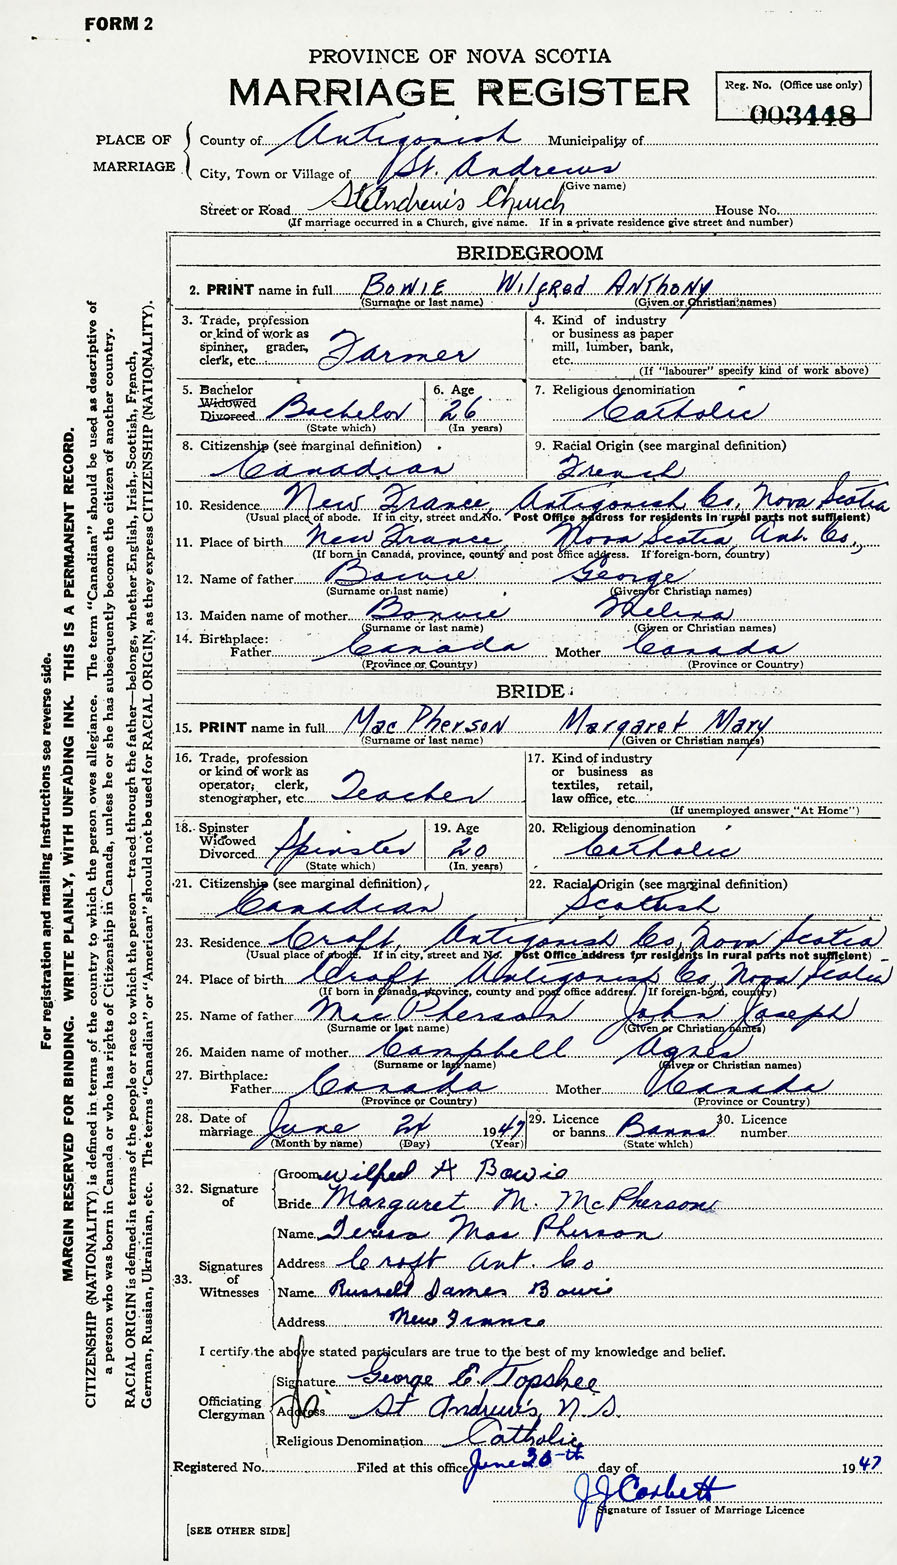 FORM 2
PROVINCE OF NOVA SCOTIA
MARRIAGE REGISTER
Reg. No. (Office use only)
003448
PLACE OF MARRIAGE
County of Antigonish Municipality of
City, Town or Village of St. Andrews
(Give name)
Street or Road St Andrew's Church House No.
(If marriage occurred in a Church, give name. If in a private residence give street and number)
BRIDEGROOM
2. PRINT name in full BOWIE Wilfred Anthony
(Surname or last name) (Given or Christian names)
3. Trade, profession or kind of work as spinner, grader, clerk, etc. Farmer
4. Kind of industry or business as paper mill, lumber, bank, etc.
(If "labourer" specify kind of work above)
5. Bachelor Widowed Divorced Bachelor
(State which)
6. Age 26
(In years)
7. Religious denomination
Catholic
8. Citizenship (see marginal definition)
Canadian
9. Racial Origin (see marginal definition)
French
10. Residence New France, Antigonish Co, Nova Scotia
(Usual place of abode. If in city, street and No. Post Office address for residents in rural parts not sufficient)
11. Place of birth New France, Nova Scotia, Ant. Co.,
(If born in Canada, province, county and post office address. If foreign-born, country)
12. Name of father Bowie George
(Surname or last name) (Given or Christian names)
13. Maiden name of mother Bonvie Melina
(Surname or last name) (Given or Christian names)
14. Birthplace:
Father Canada Mother Canada
(Province or Country) (Province or Country)
BRIDE
15. PRINT name in full MacPherson Margaret Mary
(Surname or last name) (Given or Christian names)
16. Trade, profession or kind of work as operator, clerk, stenographer, etc. Teacher
17. Kind of industry or business as textiles, retail, law office, etc.
(If unemployed answer "At Home")
18. Spinster Widowed Divorced Spinster
(State which)
19. Age 20
(In years)
20. Religious denomination
Catholic
21. Citizenship (see marginal definition)
Canadian
22. Racial Origin (see marginal definition)
Scottish
23. Residence Croft, Antigonish Co, Nova Scotia
(Usual place of abode. If in city, street and No. Post Office address for residents in rural parts not sufficient)
24. Place of birth Croft Antigonish Co, Nova Scotia
(If born in Canada, province, county and post office address. If foreign-born, country)
25. Name of father MacPherson John Joseph
(Surname or last name) (Given or Christian names)
26. Maiden name of mother Campbell Agnes
(Surname or last name) (Given or Christian names)
27. Birthplace:
Father Canada Mother Canada
(Province or Country) (Province or Country)
28. Date of marriage June 24 1947
(Month by name) (Day) (Year)
29. Licence or banns Banns
(State which)
30. Licence number
32. Signature of
Groom Wilfred A Bowie
Bride Margaret M. McPherson
33. Signatures of Witnesses
Name Teresa MacPherson
Address Croft Ant. Co
Name Russell James Bowie
Address New France
I certify the above stated particulars are true to the best of my knowledge and belief.
Officiating Clergyman
Signature George E. Topshee
Address St Andrew's, N.S.
Religious Denomination Catholic
Registered No. Filed at this office June 30-th day of 1947
J J Corbett
Signature of Issuer of Marriage Licence
[SEE OTHER SIDE]
For registration and mailing instructions see reverse side.
MARGIN RESERVED FOR BINDING. WRITE PLAINLY, WITH UNFADING INK. THIS IS A PERMANENT RECORD.
CITIZENSHIP (NATIONALITY) is defined in terms of the country to which the person owes allegiance. The term "Canadian" should be used as descriptive of
a person who was born in Canada or who has rights of Citizenship in Canada, unless he or she has subsequently become the citizen of another country.
RACIAL ORIGIN is defined in terms of the people or race to which the person—traced through the father—belongs, whether English, Irish, Scottish, French,
German, Russian, Ukrainian, etc. The terms "Canadian" or "American" should not be used for RACIAL ORIGIN, as they express CITIZENSHIP (NATIONALITY).